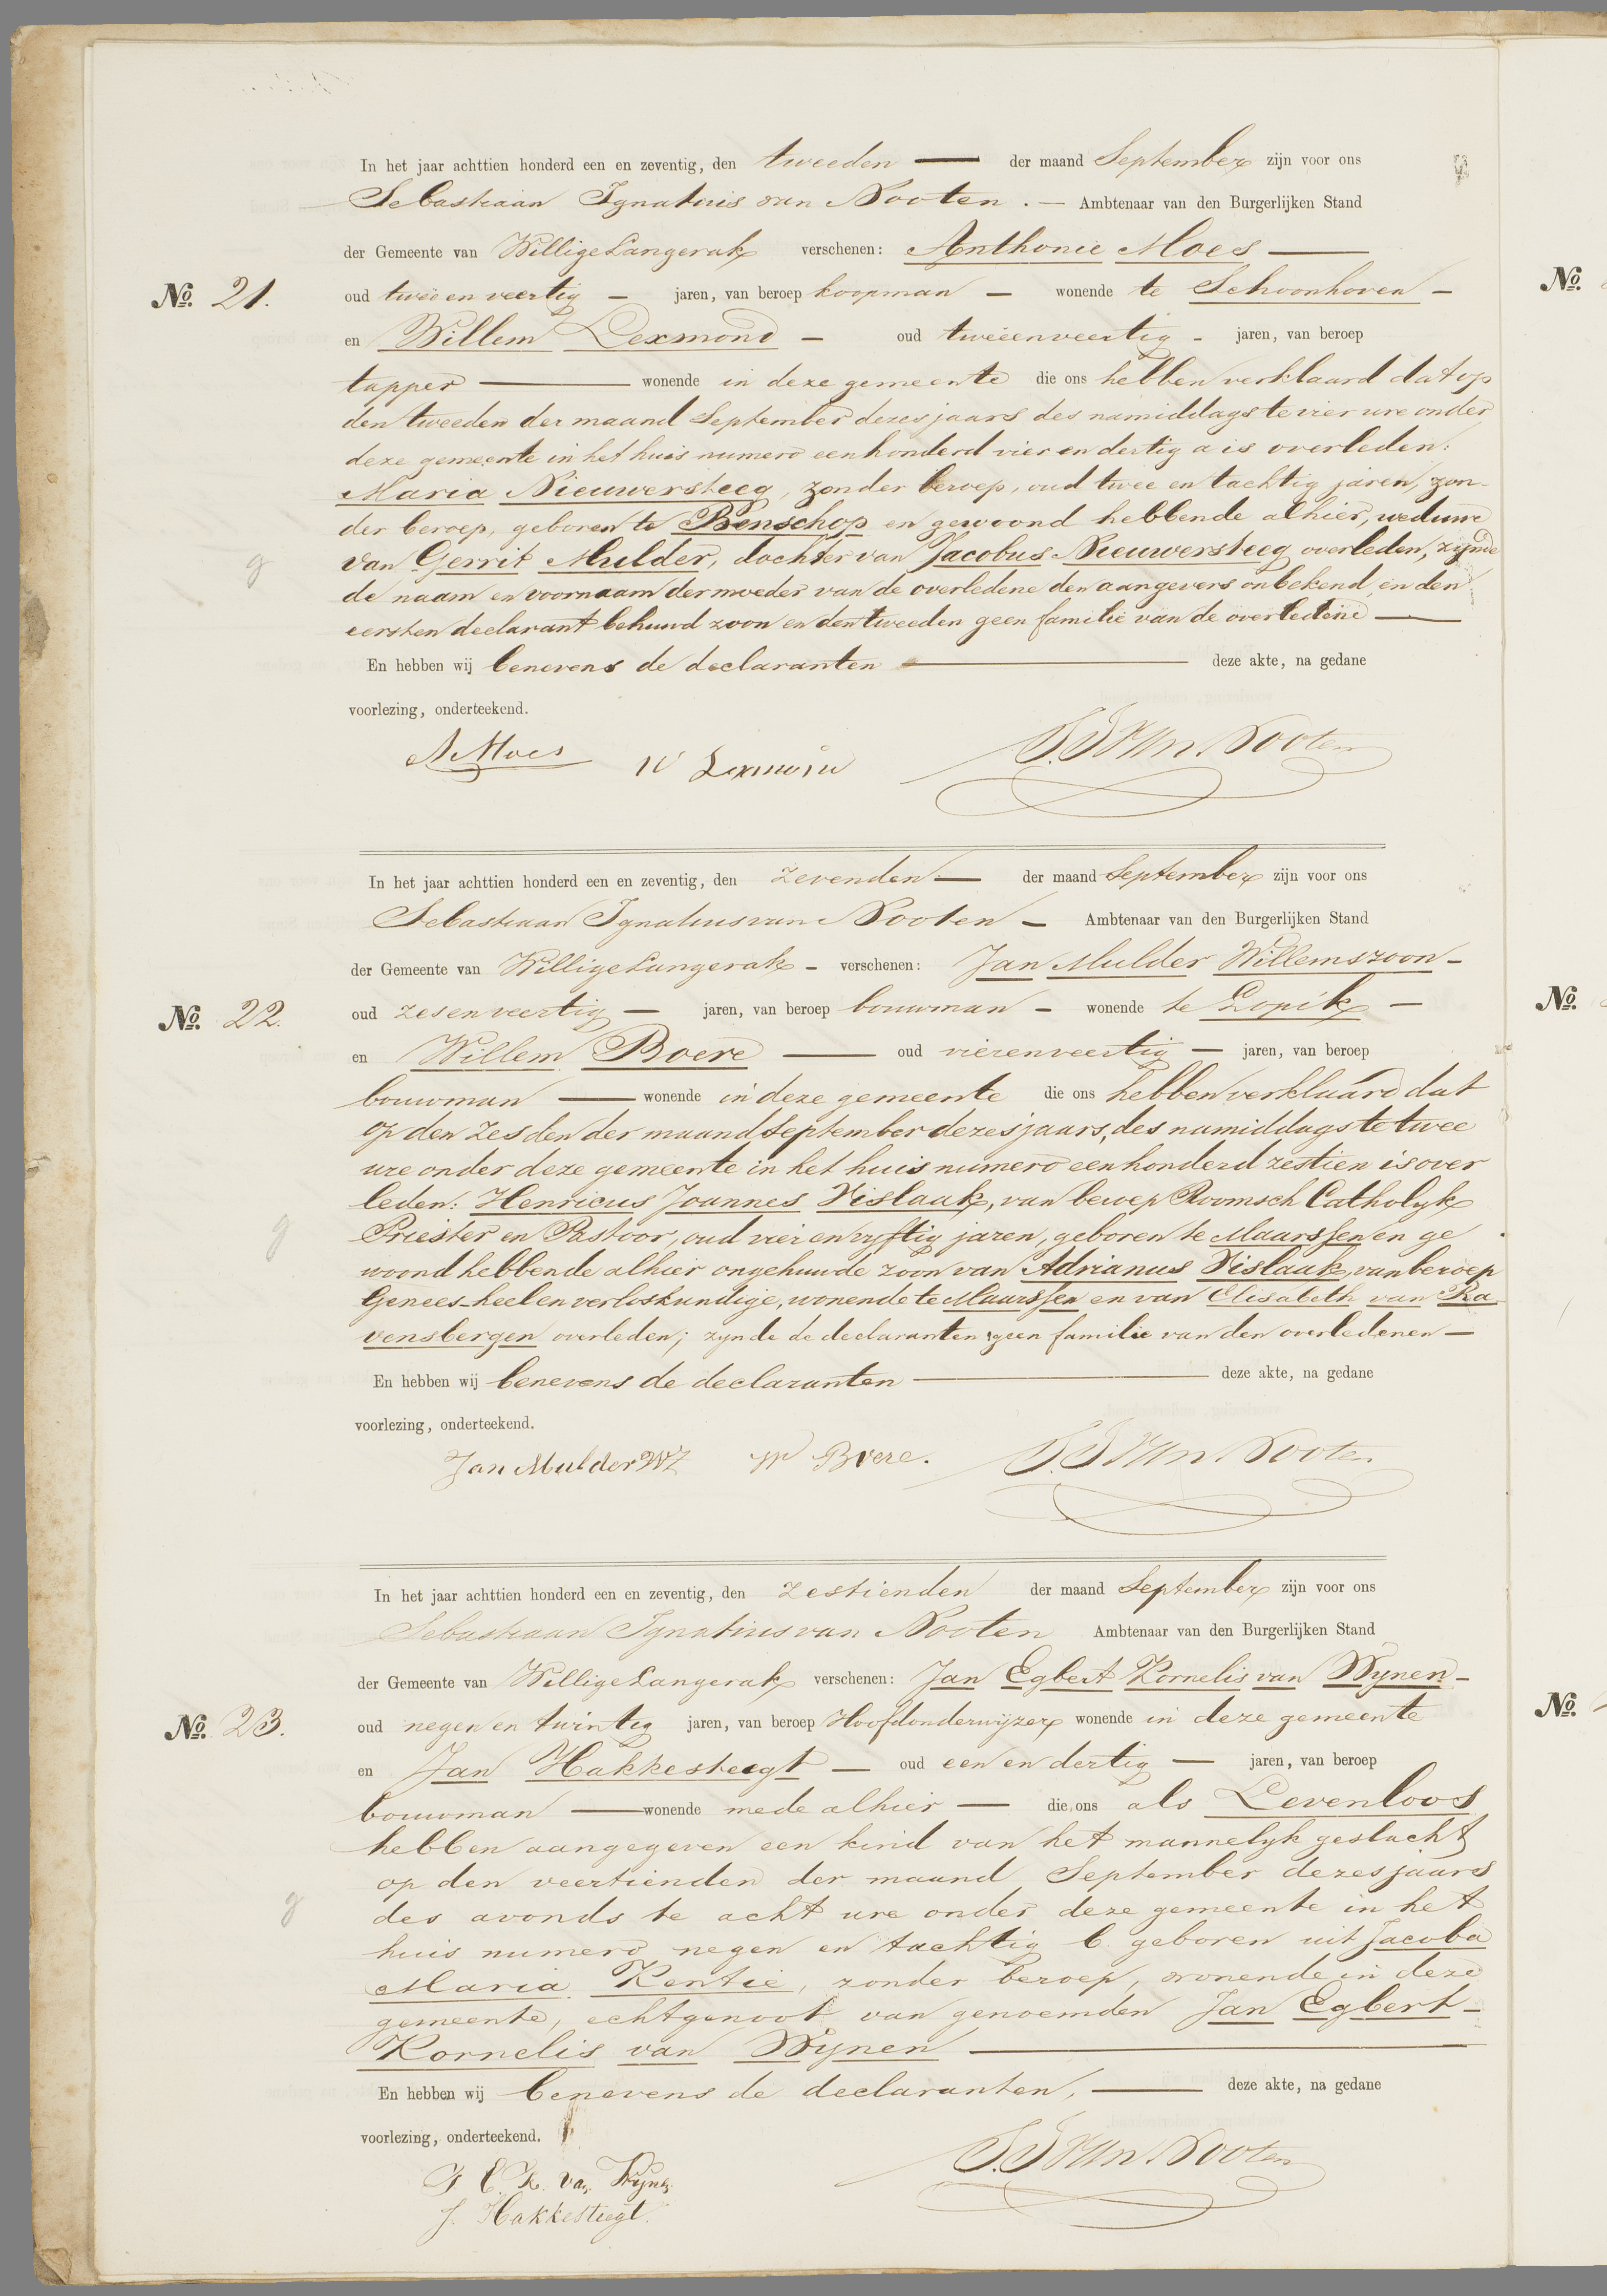 In het jaar achttien honderd een en zeventig, den tweeden — der maand September zijn voor ons
Sebastiaan Ignatius van Nooten . — Ambtenaar van den Burgerlijken Stand
der Gemeente van Willige Langerak verschenen: Anthonie Moes —
No. 21.
oud twee en veertig — jaren, van beroep koopman — wonende te Schoonhoven —
en Willem Lexmond — oud tweeenveertig - jaren, van beroep
tapper — wonende in deze gemeente die ons hebben verklaard dat op
den tweeden der maand September dezes jaars des namiddags te vier ure onder
deze gemeente in het huis numero een honderd vier en dertig a is overleden:
Maria Nieuwersteeg, zonder beroep, oud twee en tachtig jaren, zon-
der beroep, geboren te Benschop en gewoond hebbende alhier, weduwe
van Gerrit Mulder, dochter van Jacobus Nieuwersteeg overleden, zijnde
g
de naam en voornaam der moeder van de overledene den aangevers onbekend, en den
eersten declarant behuwd zoon en den tweeden geen familie van de overledene —
En hebben wij benevens de declaranten — deze akte, na gedane
voorlezing, onderteekend.
A Moes W Lexmond S. I. van Nooten
In het jaar achttien honderd een en zeventig, den zevenden — der maand September zijn voor ons
Sebastiaan Ignatius van Nooten — Ambtenaar van den Burgerlijken Stand
der Gemeente van Willige Langerak - verschenen: Jan Mulder Willemszoon -
No. 22.
oud zesenveertig — jaren, van beroep bouwman — wonende te Lopik —
en Willem Boere — oud vierenveertig — jaren, van beroep
bouwman — wonende in deze gemeente die ons hebben verklaard dat
op den zesden der maand September dezes jaars, des namiddags te twee
ure onder deze gemeente in het huis numero een honderd zestien is over
leden: Henricus Joannes Vislaak, van beroep Roomsch Catholyk
Priester en Pastoor, oud vier en vyftig jaren, geboren te Maarssen en ge
g
woond hebbende alhier ongehuwde zoon van Adrianus Vislaak, van beroep
Genees-heel en verloskundige, wonende te Maarssen en van Elisabeth van Ra-
vensbergen overleden; zynde de declaranten geen familie van den overledenen —
En hebben wij benevens de declaranten — deze akte, na gedane
voorlezing, onderteekend.
Jan Mulder WZ W Boere. S. I. van Nooten
In het jaar achttien honderd een en zeventig, den zestienden der maand September zijn voor ons
Sebastiaan Ignatius van Nooten Ambtenaar van den Burgerlijken Stand
der Gemeente van Willige Langerak verschenen: Jan Egbert Kornelis van Wynen -
No. 23.
oud negen en twintig jaren, van beroep Hoofdonderwijzer wonende in deze gemeente
en Jan Hakkesteegt — oud een en dertig — jaren, van beroep
bouwman — wonende mede alhier — die ons als Levenloos
hebben aangegeven een kind van het mannelyk geslacht
op den veertienden der maand September dezes jaars
g
des avonds te acht ure onder deze gemeente in het
huis numero negen en tachtig b geboren uit Jacoba
Maria Kentie, zonder beroep, wonende in deze
gemeente, echtgenoot van genoemden Jan Egbert -
Kornelis van Wynen —
En hebben wij benevens de declaranten, — deze akte, na gedane
voorlezing, onderteekend.
J E. K. van Wynen S. I. van Nooten
J. Hakkesteegt.
No.
No.
No.